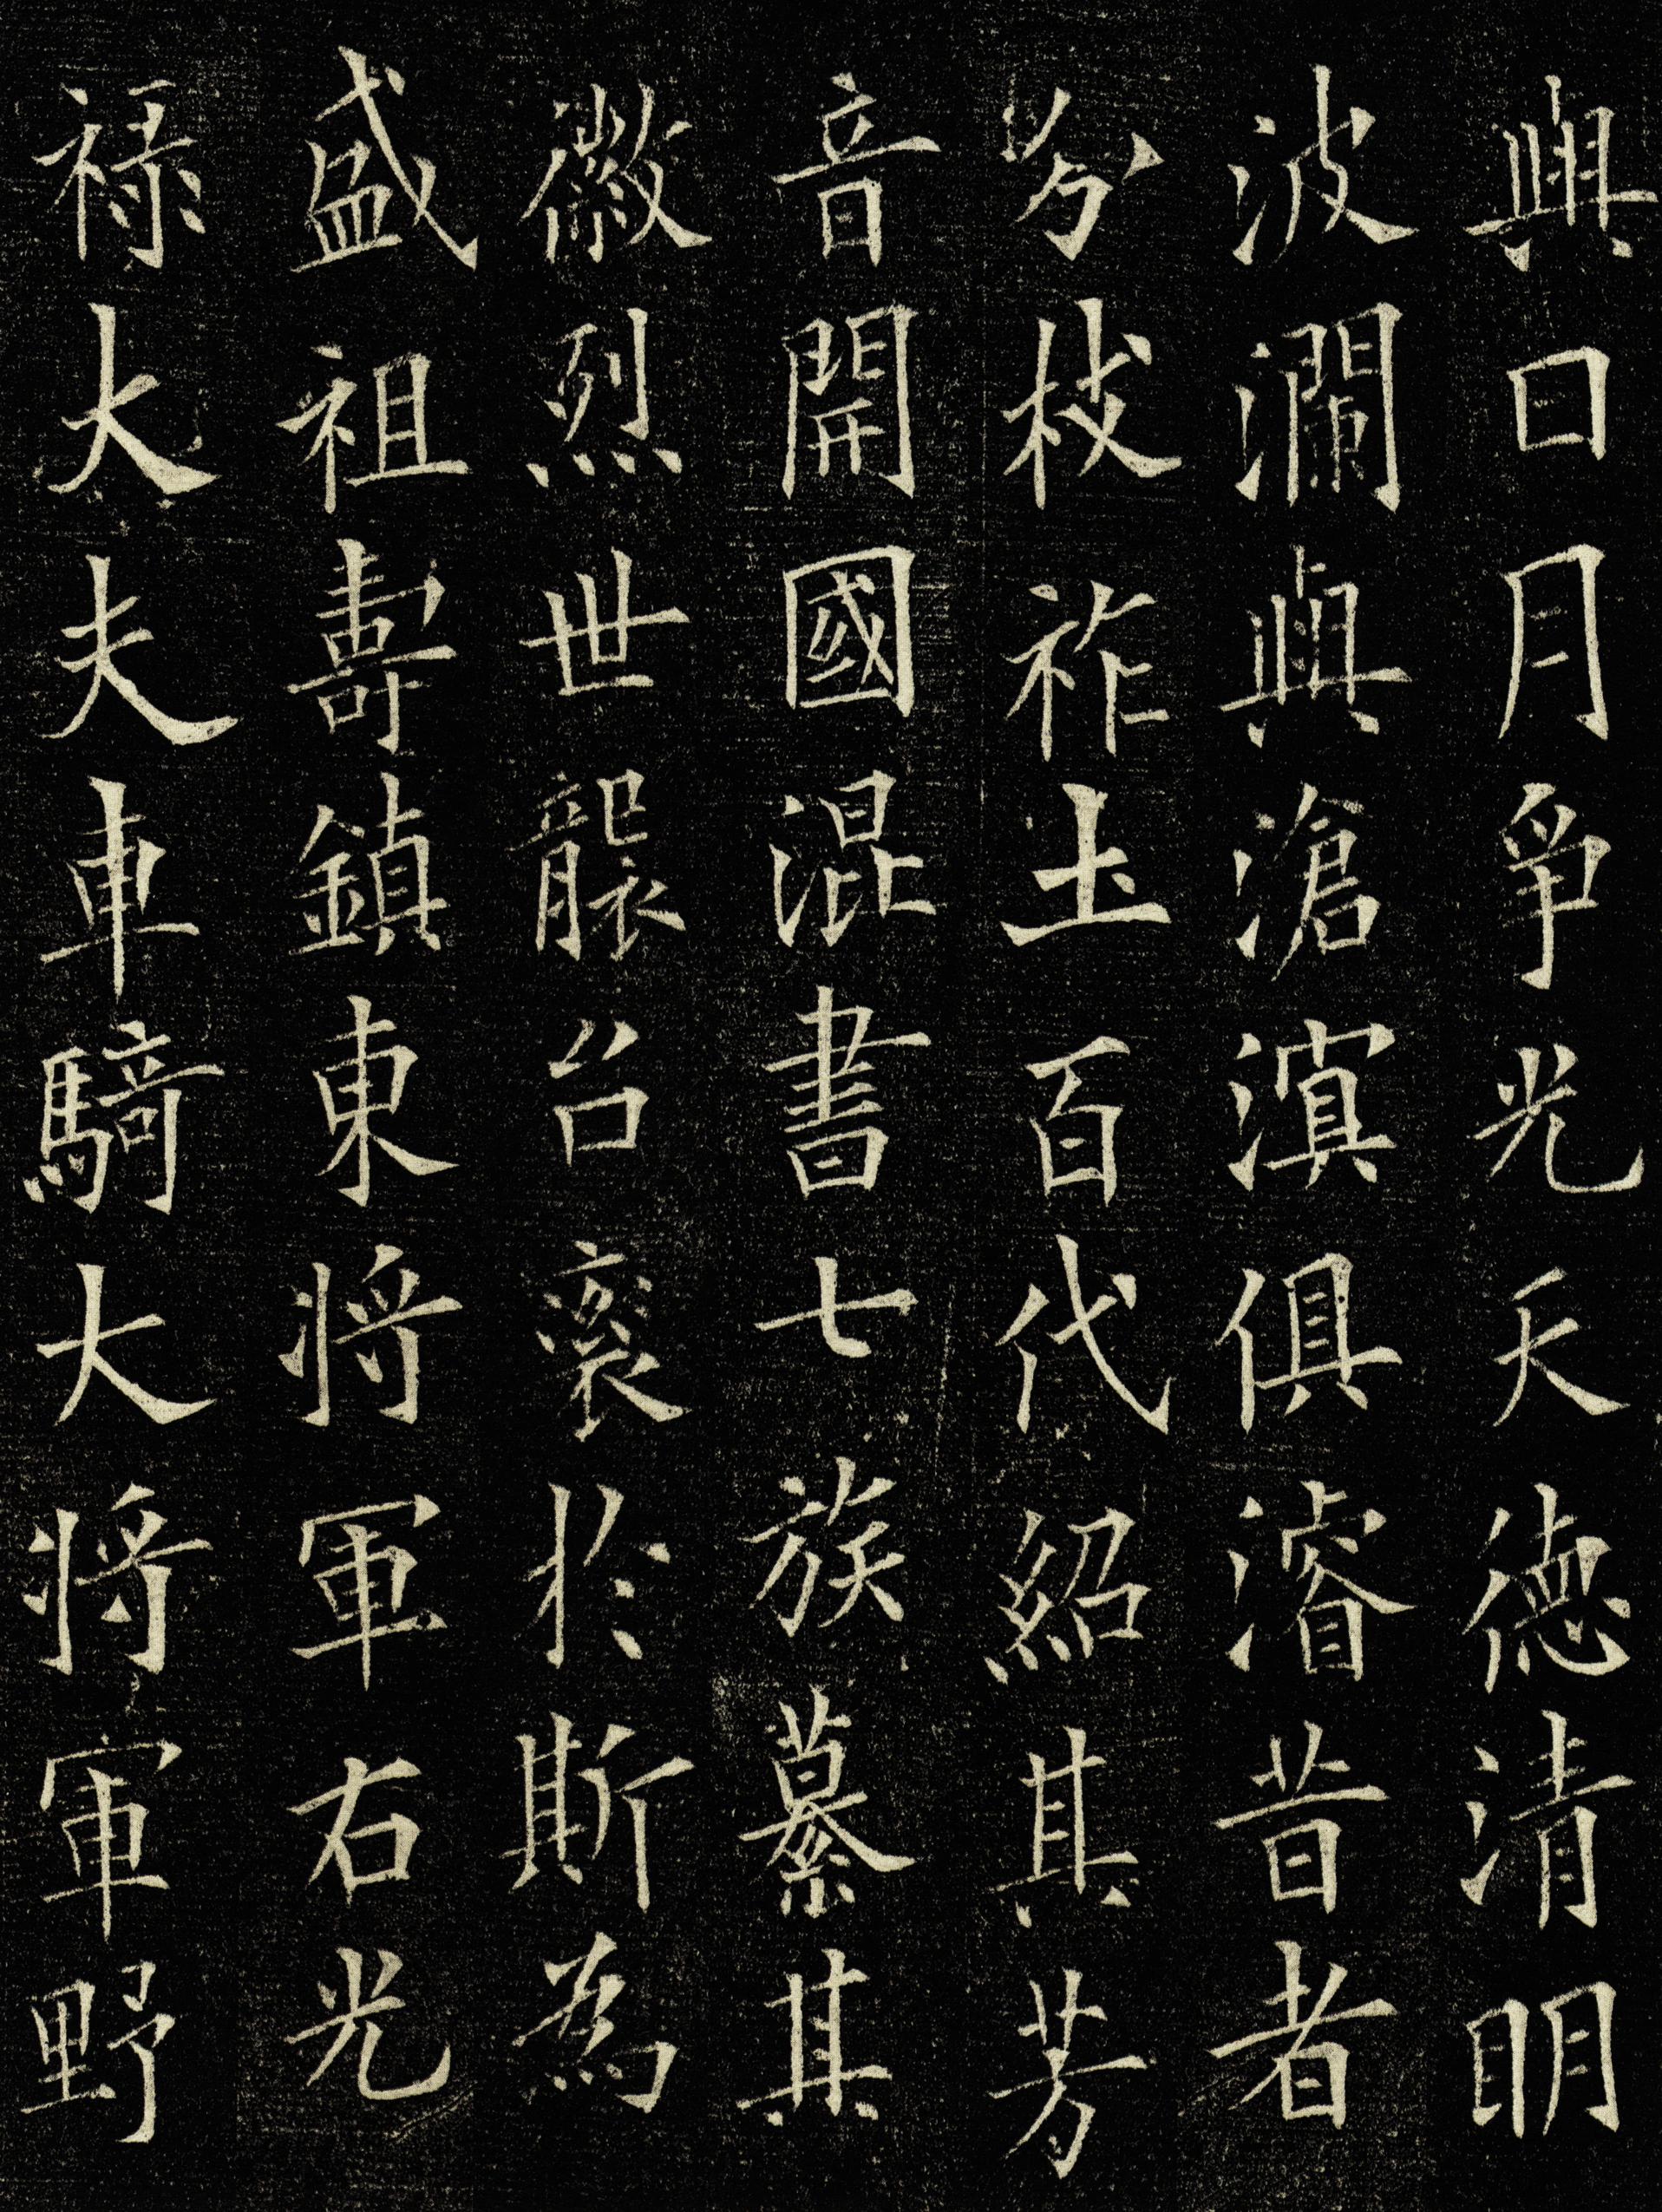 與日月争光天德清明
波瀾與滄溟俱濬昔者
分枝祚土百代紹其芳
音開國混書七族纂其
徽烈世襲台衮於斯為
盛祖壽鎮東將軍右光
禄大夫車騎大將軍野